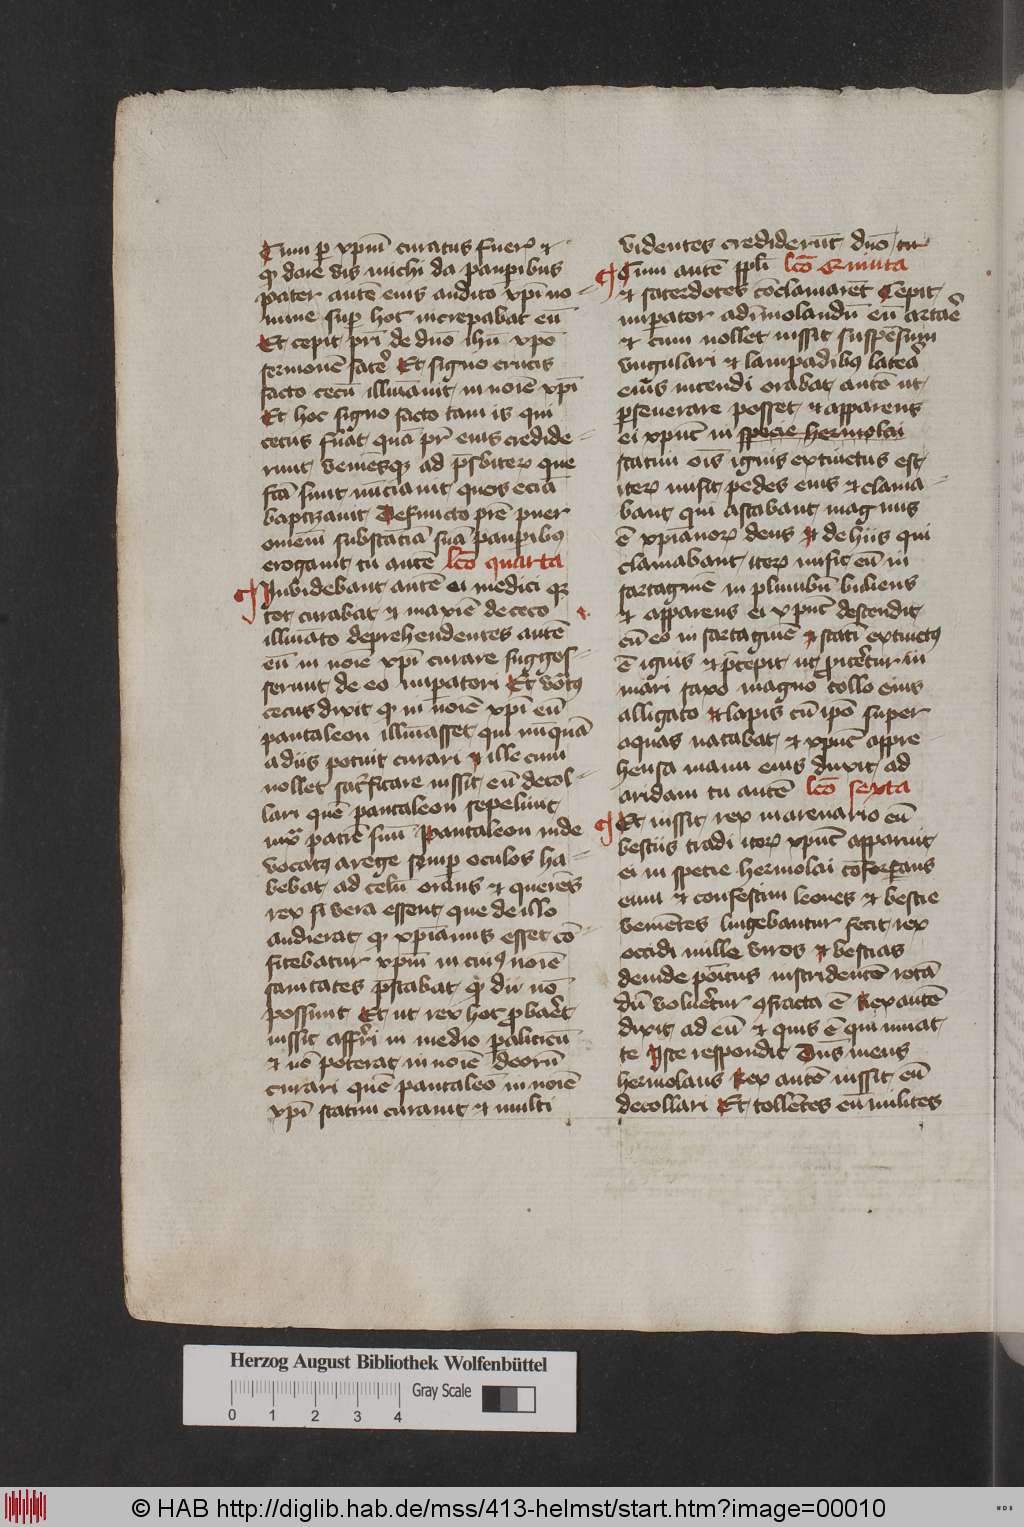 Cum p xpm̄ curatus fuer⁊ ⁊
ꝙ dare vis michi da paup̄ibus
pater autē eius audito xp̄i no
mine sup hoc increpabat eū
Et cepit pr̄i de dn̄o ihū xp̄o
sermonē facē⁊ Et signo crucis
facto cecū illūīavit in noīe xp̄i
Et hoc signo facto tam is qui
cecus fuāt quā pr̄ eius credide
runt veniēsqꝫ ad p̄sbiter⁊ que
fc̄a sunt nūciavit quos eciā
baptizauit Defuncto pr̄e puer
omnem substāciā suā paup̄ibꝰ
erogauit tu autē lc̄o quarta
Inuidebant autē ei medici qꝛ
tot curabat ⁊ maxīe de ceco
illūīato deprehendentes autē
eū in noīe xp̄i curare sugges
serunt de eo impatori Et vōtꝰ
cecus dixit ꝙ in noīe xp̄i eū
pantaleon illūīasset qui nūquā
a diis potuit curari ⁊ ille cum
nollet sacrificare iussit eū decol
lari quē pantaleon sepeliuit
iux̄ patrē suū Pantaleon inde
vocatꝰ a rege semp oculos ha
bebat ad celū orans ⁊ querēs
rex si vera essent que de illo
audierat ꝙ xp̄ianus esset cō
fitebatur xp̄m in cuiꝰ noīe
sanitates p̄stabat ꝙ dii nō
possunt Et ut rex hoc ꝓbaret
iussit afferri in medio paliticū
⁊ nō poterat in noīe deorū
curari quē pantaleō in noīe
xp̄i statim curauit ⁊ multi
videntes crediderūt dn̄o tu
Cum autē ppl̄i lc̄o Quinta
⁊ sacerdotes cōclamarēt Cepit
impator ad īmolandū eū artaē
⁊ cum nollet iussit suspensum
vngulari ⁊ lampadibꝰ latera
eius incendi orabat autē ut
ꝑseuerare posset ⁊ apparens
ei xp̄us in specie hermolai
statim oīs ignis extinctus est
iter⁊ misit pedes eius ⁊ clama
bant qui astabant magnus
ē xp̄ianor⁊ deus ⁊ de hiis qui
clamabant iter⁊ misit eū in
sartaginē in plumbū buliens
⁊ apparens ei xp̄us descendit
cū eo in sartaginē ⁊ statī extinctꝰ
ē ignis ⁊ p̄cepit ut ꝓiceretur in
mari saxo magno collo eius
alligato ⁊ lapis cū ipō super
aquas natabat ⁊ xp̄us appre
hensa manu eius duxit ad
aridam tu autē lc̄o sexta
Et iussit rex marenario eū
bestiis tradi iter⁊ xp̄us apparuit
ei in specie hermolai cōfortans
eum ⁊ confestim leones ⁊ bestie
venientes lingebantur fecit rex
occidi mille viros ⁊ bestias
deinde poītus in stridentē rotā
dū volueretur ꝯfracta ē Rex autē
dixit ad eū ⁊ quis ē qui iuuat
te Iste respondit Dn̄s meus
hermolaus Rex autē iussit eū
decollari Et tollētes eū milites
Herzog August Bibliothek Wolfenbüttel
Gray Scale
0 1 2 3 4
© HAB http://diglib.hab.de/mss/413-helmst/start.htm?image=00010